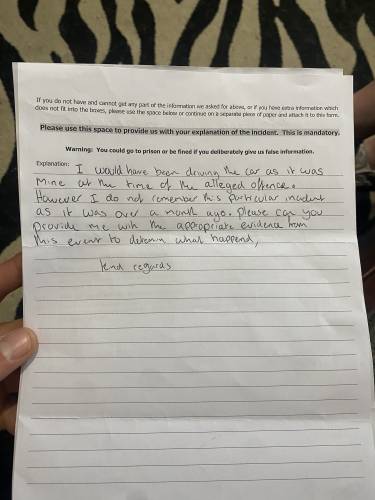 If you do not have and cannot get any part of the information we asked for above, or if you have extra information which
does not fit into the boxes, please use the space below or continue on a separate piece of paper and attach it to this form.
Please use this space to provide us with your explanation of the incident. This is mandatory.
Warning: You could go to prison or be fined if you deliberately give us false information.
Explanation: I would have been driving the car as it was
mine at the time of the alleged offence.
However I do not remember this particular incident
as it was over a month ago. Please can you
provide me with the appropriate evidence from
this event to determin what happend,
kind regards